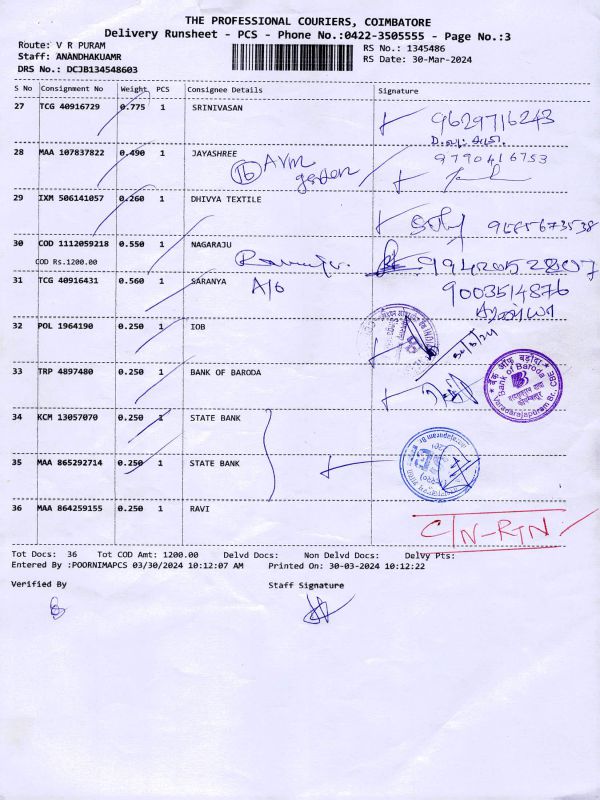 THE PROFESSIONAL COURIERS, COIMBATORE
Delivery Runsheet - PCS - Phone No.:0422-3505555 - Page No.:3
Route: V R PURAM
RS No.: 1345486
Staff: ANANDHAKUAMR
RS Date: 30-Mar-2024
DRS No.: DCJB134548603
S No Consignment No Weight PCS Consignee Details Signature
27 TCG 40916729 0.775 1 SRINIVASAN
9629716243
28 MAA 107837822 0.490 1 JAYASHREE
16 AVM garden
9790416753
29 IXM 506141057 0.260 1 DHIVYA TEXTILE
30 COD 1112059218 0.550 1 NAGARAJU
COD Rs.1200.00
9942052807
31 TCG 40916431 0.560 1 SARANYA
A/6
9003514876
32 POL 1964190 0.250 1 IOB
33 TRP 4897480 0.250 1 BANK OF BARODA
बैंक ऑफ़ बड़ौदा
Bank of Baroda
Varadarajapuram Br.
CBE
34 KCM 13057070 0.250 1 STATE BANK
35 MAA 865292714 0.250 1 STATE BANK
36 MAA 864259155 0.250 1 RAVI
C/N-RTN
Tot Docs: 36 Tot COD Amt: 1200.00 Delvd Docs: Non Delvd Docs: Delvy Pts:
Entered By :POORNIMAPCS 03/30/2024 10:12:07 AM Printed On: 30-03-2024 10:12:22
Verified By Staff Signature